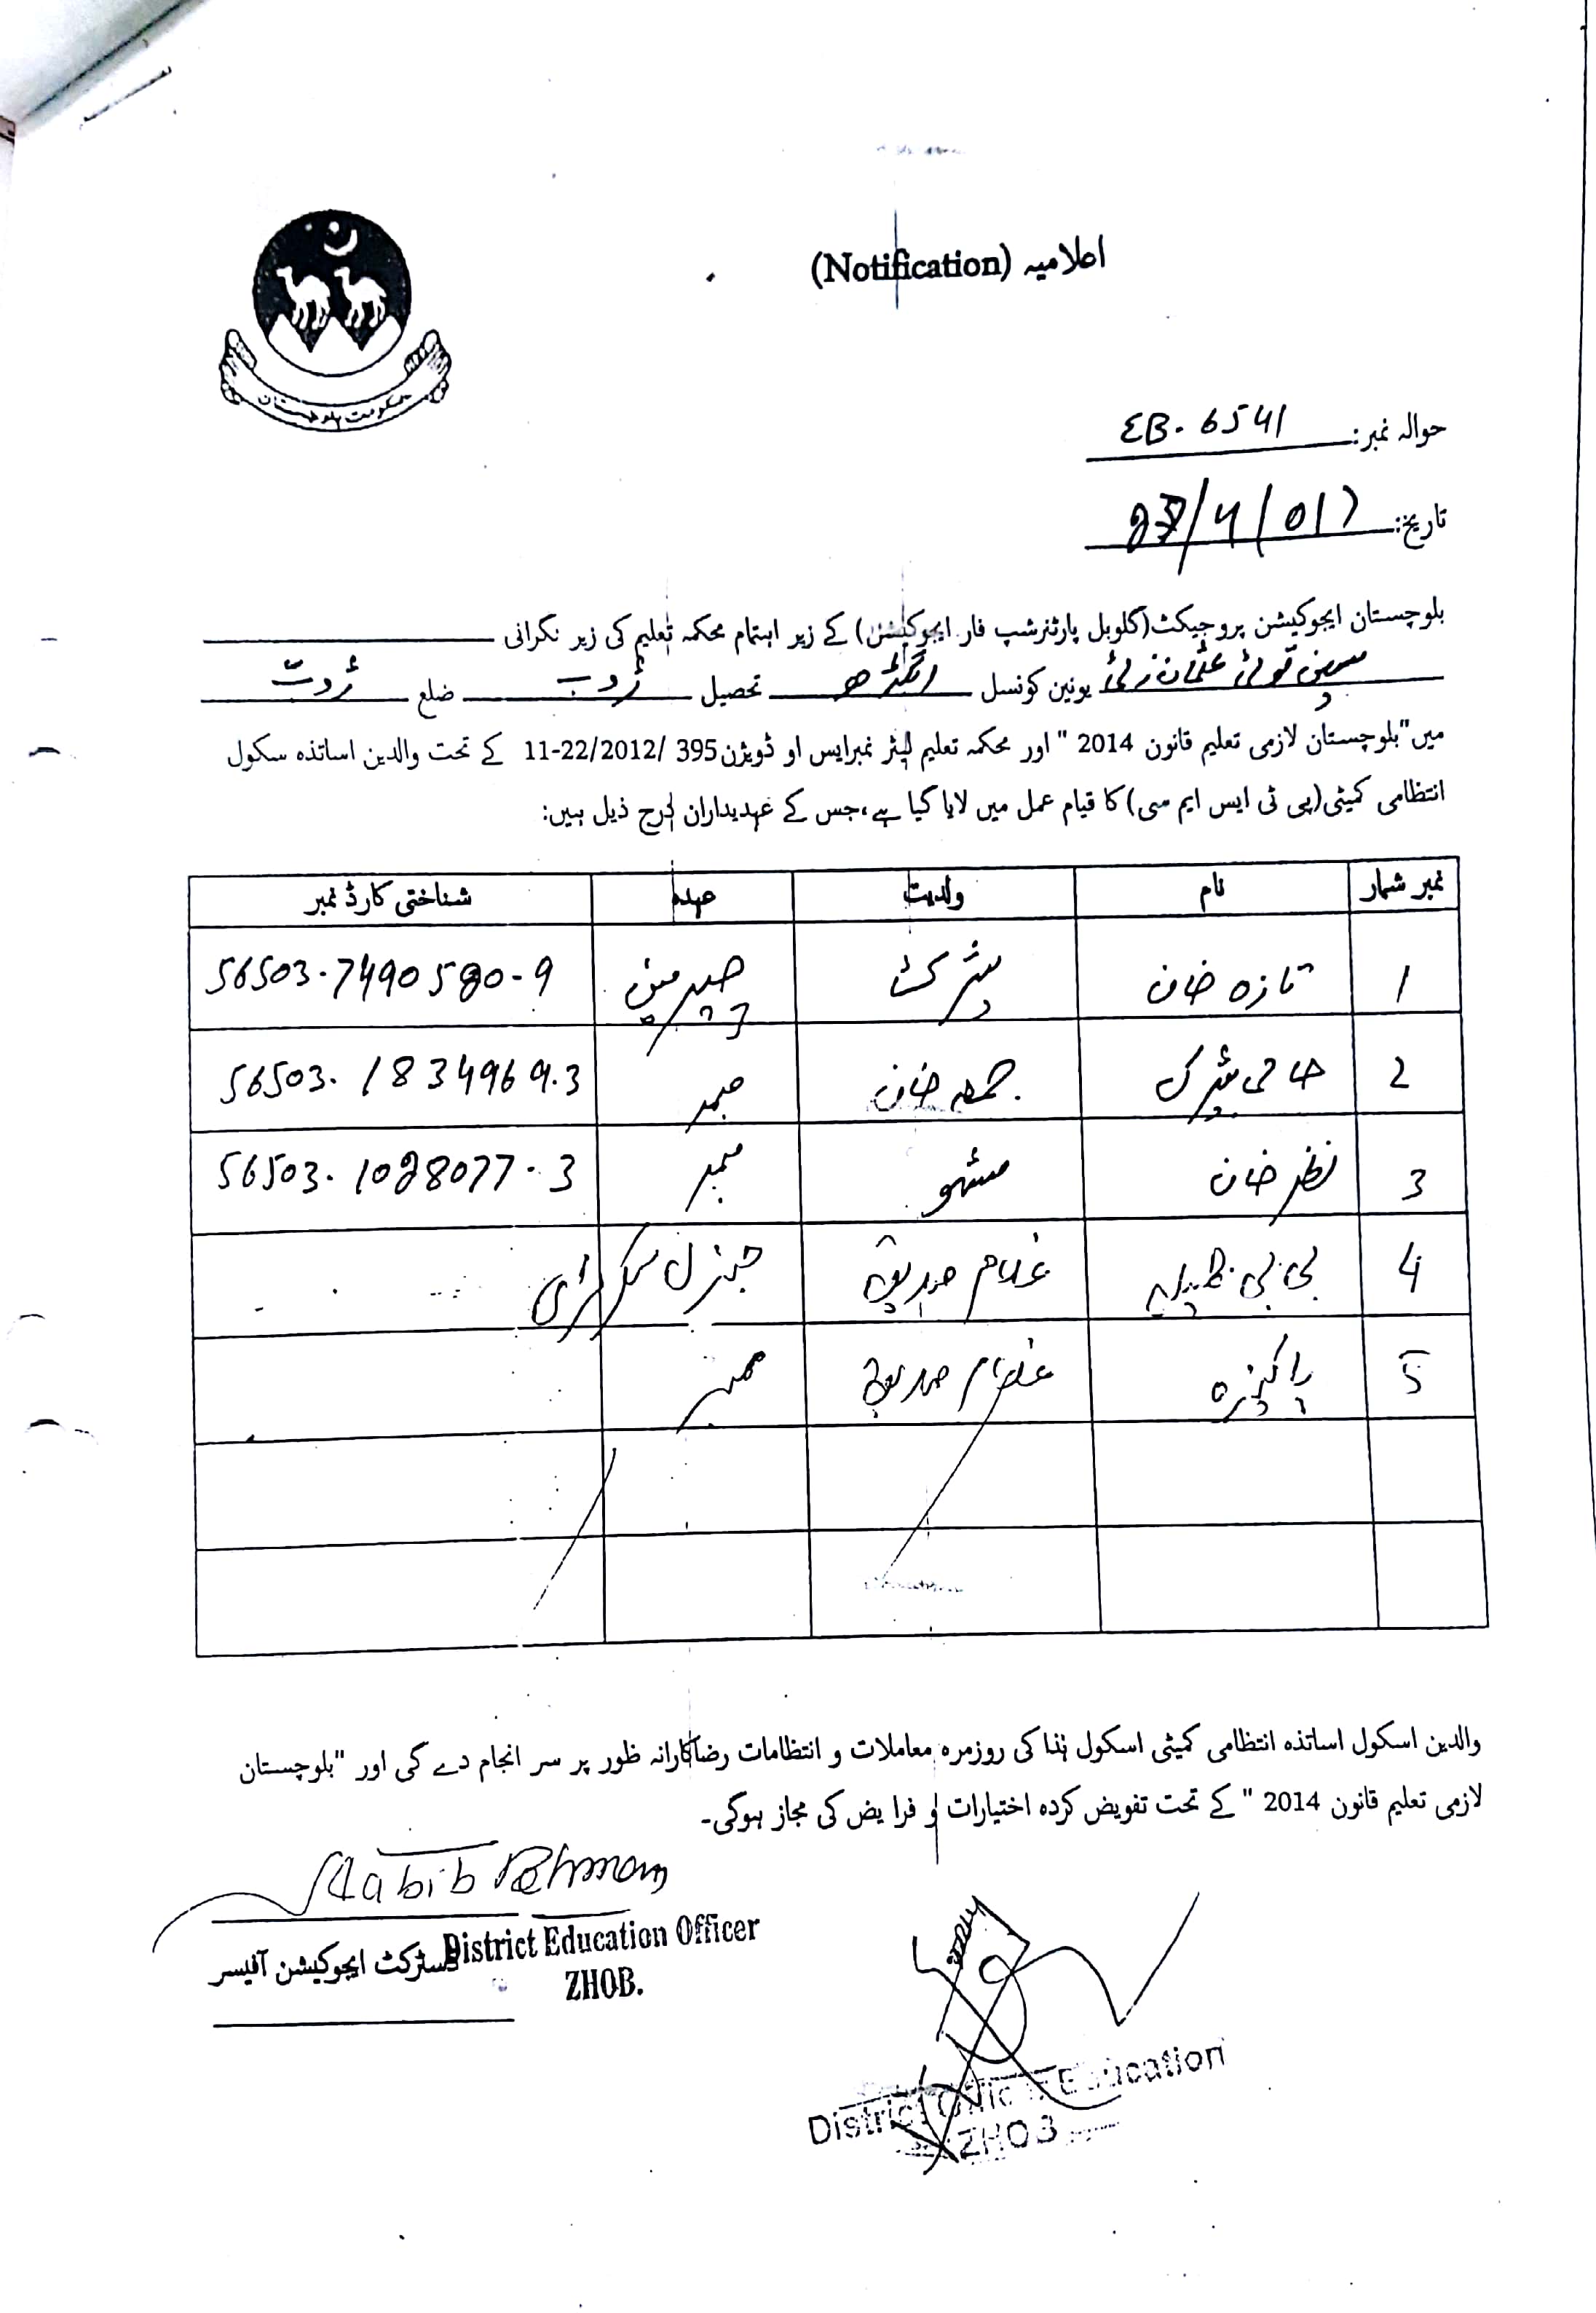 اعلامیہ (Notification)
حکومت بلوچستان
حوالہ نمبر: EB. 6541
تاریخ: /4/017
بلوچستان ایجوکیشن پروجیکٹ(گلوبل پارٹنرشپ فار ایجوکیشن) کے زیر اہتمام محکمہ تعلیم کی زیر نگرانی
عثمان زئی یونین کونسل تحصیل ژوب ضلع ژوب
میں"بلوچستان لازمی تعلیم قانون 2014 " اور محکمہ تعلیم لیٹر نمبرایس او ڈویژن395 /11-22/2012 کے تحت والدین اساتذہ سکول
انتظامی کمیٹی(پی ٹی ایس ایم سی) کا قیام عمل میں لایا گیا ہے،جس کے عہدیداران درج ذیل ہیں:
نمبر شمار نام ولدیت عہدہ شناختی کارڈ نمبر
1 تازہ خان چیرمین 56503-7490580-9
2 حاجی جمعہ خان ممبر 56503-1834969-3
3 نظر خان ممبر 56503-1028077-3
4 بی بی غلام صدیق جنرل سکرٹری
5 پاکیزہ غلام صدیق ممبر
والدین اسکول اساتذہ انتظامی کمیٹی اسکول ہذا کی روزمرہ معاملات و انتظامات رضاکارانہ طور پر سر انجام دے گی اور "بلوچستان
لازمی تعلیم قانون 2014 " کے تحت تفویض کردہ اختیارات و فرایض کی مجاز ہوگی۔
Habib Rehman
District Education Officer
ڈسٹرکٹ ایجوکیشن آفیسر
ZHOB.
District Officer Education
ZHOB